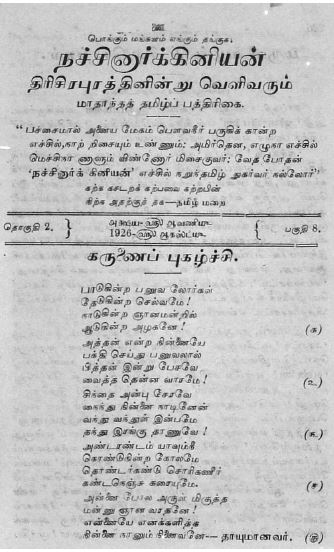 உ
பொங்கும் மங்களம் எங்கும் தங்குக.
நச்சினார்க்கினியன்
திரிசிரபுரத்தினின்று வெளிவரும்
மாதாந்தத் தமிழ்ப் பத்திரிகை.
"பச்சைமால் அனைய மேகம் பௌவநீர் பருகிக் கான்ற
எச்சில், நாற் றிசையும் உண்ணும்; அமிர்தென, எழுநா எச்சில்
மெச்சிநா ணாளும் விண்ணோர் மிசைகுவர்; வேத போதன்
'நச்சினார்க் கினியன்' எச்சில் நறுந்தமிழ் துகர்வர் நல்லோர்"
கற்க கசடறக் கற்பவை கற்றபின்
நிற்க அதற்குத் தக—தமிழ் மறை
தொகுதி 2. } அக்ஷய௵ ஆவணி௴ { பகுதி 8.
1926-௵ ஆகஸ்ட்௴
கருணைப் புகழ்ச்சி.
பாடுகின்ற பனுவ லோர்கள்
தேடுகின்ற செல்வமே!
நாடுகின்ற ஞானமன்றில்
ஆடுகின்ற அழகனே! (க)
அத்தன் என்ற நின்னையே
பக்தி செய்து பனுவலால்
பித்தன் இன்று பேசவே
வைத்த தென்ன வாரமே! (உ)
சிந்தை அன்பு சேரவே
நைந்து நின்னை நாடினேன்
வந்து வந்துள் இன்பமே
தந்து இரங்கு தாணுவே! (௩)
அண்டரண்டம் யாவுமீ
கொண்டுநின்ற கோலமே
தொண்டர்கண்டு சொரிகணீர்
கண்டநெஞ்ச கரையுமே. (ச)
அன்னை போல அருள் மிகுத்த
மன்னு ஞான வரதனே!
என்னையே எனக்களித்த
நின்னை நானும் நினைவனே— தாயுமானவர். (ரு)